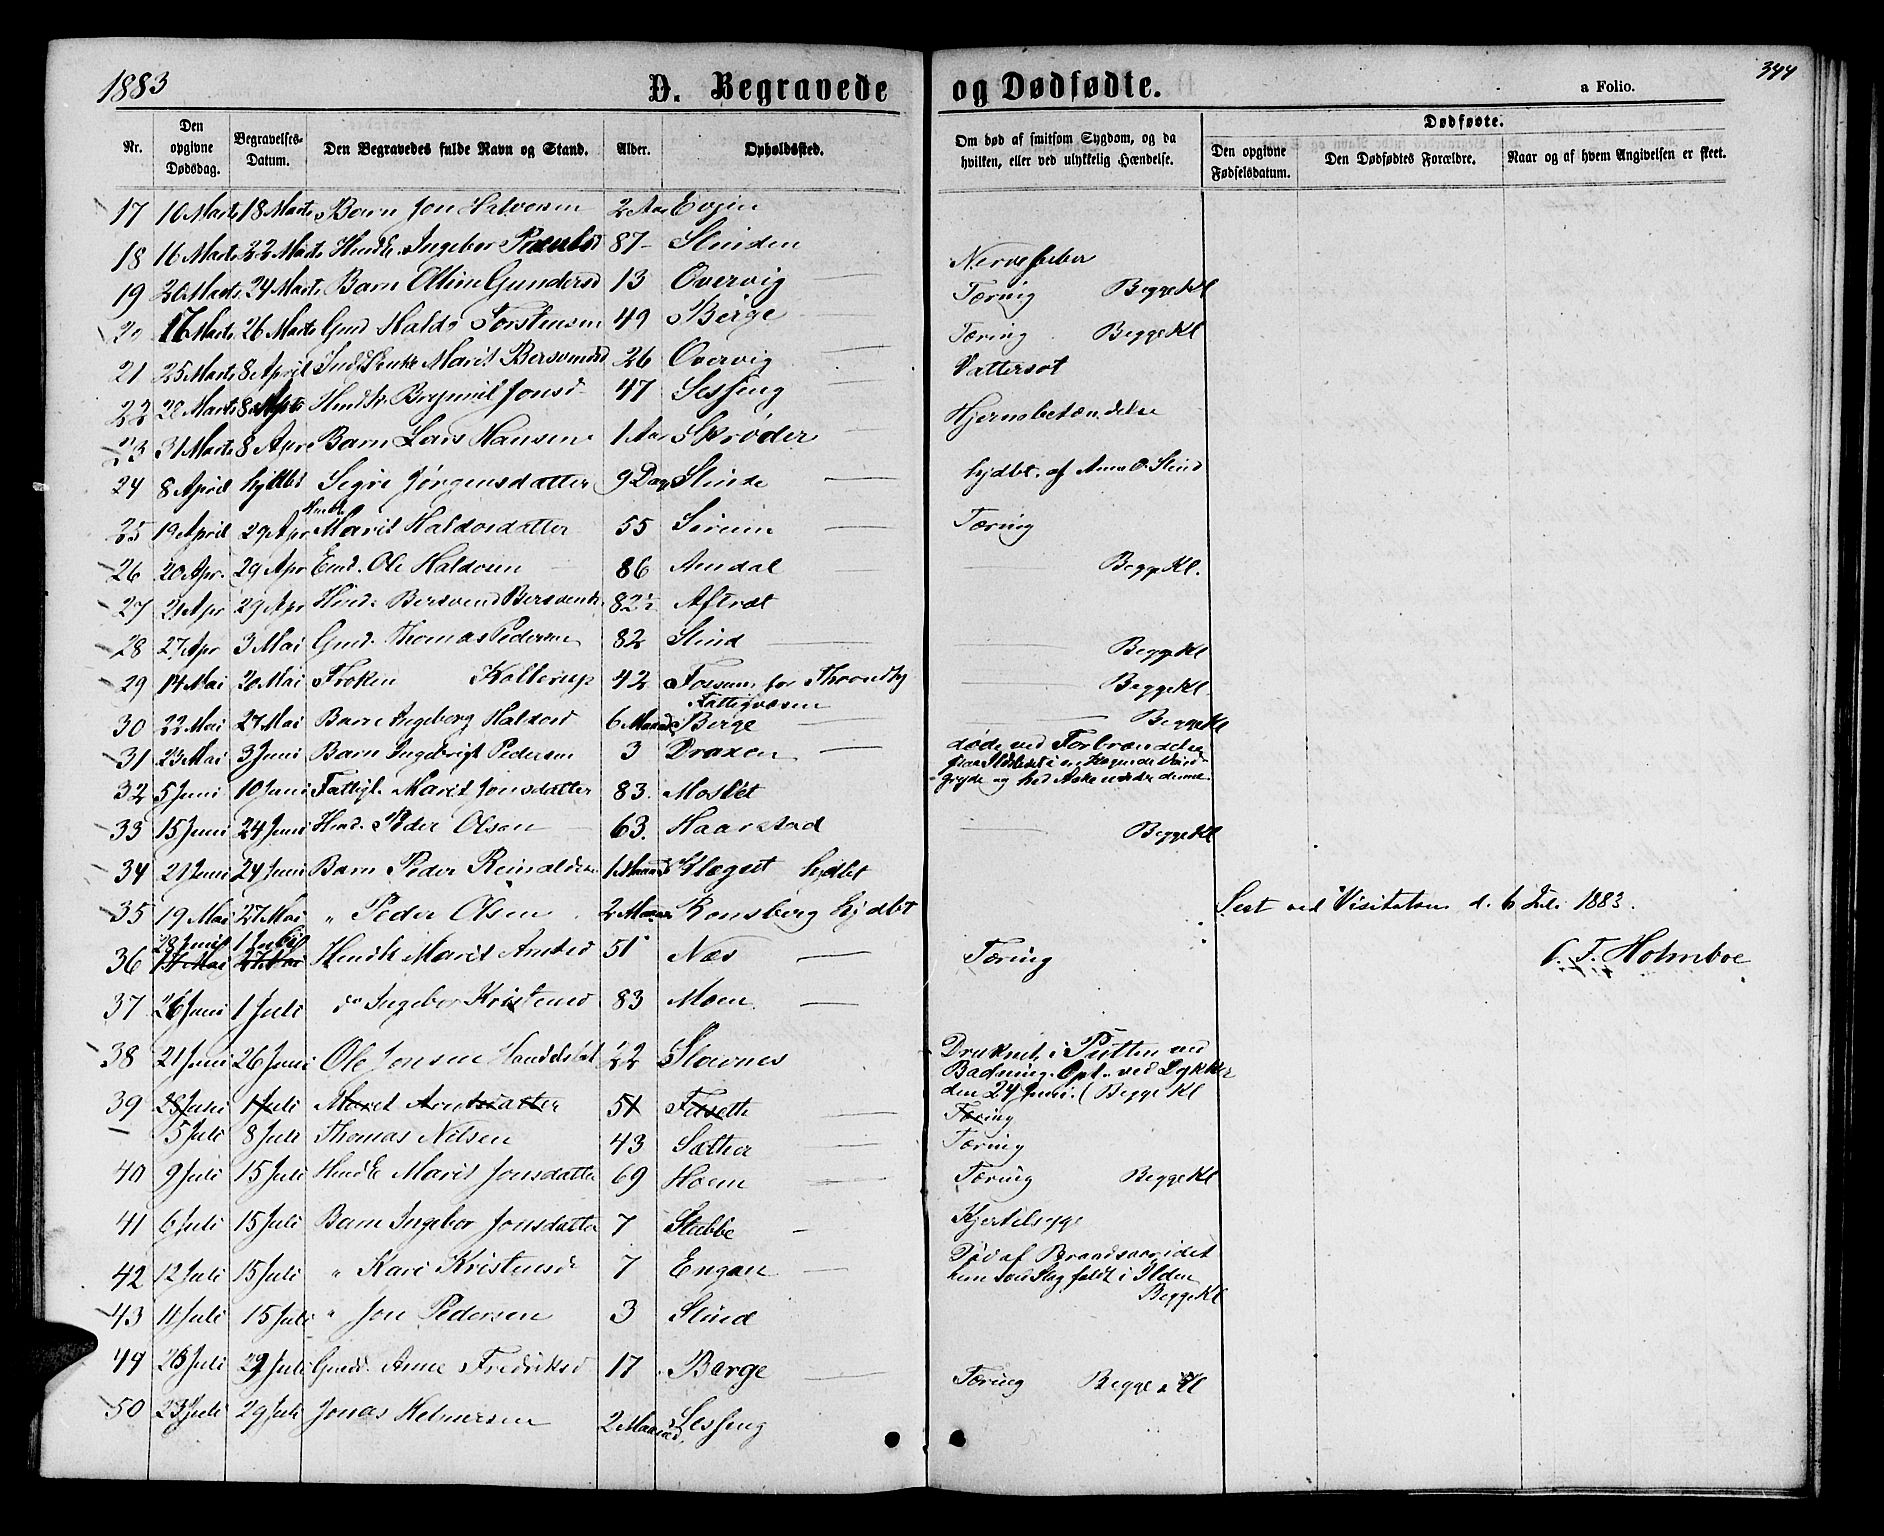 1883
D. Begravede og Dødfødte.
a Folio.
344
Nr.
Den opgivne Dødsdag.
Begravelses-Datum.
Den Begravedes fulde Navn og Stand.
Alder.
Opholdssted.
Om død af smitsom Sygdom, og da hvilken, eller ved ulykkelig Hændelse.
Dødfødte.
Den opgivne Fødselsdatum.
Den Dødfødtes Forældre.
Naar og af hvem Angivelsen er skeet.
17 10 Marts 18 Marts Barn Jon Halvorsen 2 Aar Evjen
18 16 Marts 22 Marts Ingebor 87 Slinden Nervefeber
19 20 Marts 24 Marts Barn Oline Gundersd 13 Overvig Tæring Begge Kl
20 17 Marts 26 Marts Gmd Haldo Torstensen 49 Berge Tæring Begge Kl
21 25 Marts 8 April Marit Bersvendsd 26 Overvig Vattersot
22 28 Marts 8 Jonsd 47 Selsjing Hjernebetændelse
23 31 Marts 8 Apr Barn Lars Hansen 1 Aar Skrøder
24 8 April Sigri Jørgensdatter 9 Dag Slinde hjdbt. af Anne O. Slind
25 19 April 29 Apr Marit Haldosdatter 55 Tæring
26 20 Apr. 29 Apr Emd. Ole Haldosen 86 Amdal Begge Kl.
27 21 Apr 29 Apr Bersvend 82½ Aftræt
28 27 Apr 3 Mai Gmd. Thomas Pedersen 82 Slind Begge Kl
29 14 Mai 20 Mai Frøken Kolterup 42 Fossum for Throndhj Fattigvæsen Begge Kl
30 22 Mai 27 Mai Barn Ingeborg Haldosd 6 Maaned Berge Begge Kl
31 23 Mai 3 Juni Barn Ingebrigt Pedersen 3 Draxen døde ved Forbrændelse
gryde og hed Aske under denne
32 5 Juni 10 Juni Fattigl. Marit Jonsdatter 83. Moslet
33 15 Juni 24 Juni Peder Olsen 63. Haarstad Begge Kl
34 21 Juni 24 Juni Barn Peder 1 Maaned Klægset hjdbt
35 19 Mai 27 Mai " Peder Olsen 2 Maaned Rønsberg hjdbt
Seet ved Visitatsen d. 6 Juli 1883.
C. T. Holmboe
36 28 Juni 1 Juli Marit Arntsd 51 Næs Tæring
37 26 Juni 1 Juli do Ingebor Kristensd 83 Moen
38 21 Juni 26 Juni Ole Jonsen 22 Stavnes Druknet i ved
Badning. Opt. ved Lykkja
den 24 Juni. (Begge Kl
39 28 Juni 1 Juli Marit Arntsdatter 51 Tæring
5 Juli 8 Juli Thomas Nilsen 43 Sæther Tæring
40 9 Juli 15 Juli Marit Jonsdatter 69 Hoem Tæring Begge Kl
41 6 Juli 15 Juli Barn Ingebor Jonsdatter 7 Stubbe Kjertelsyge
42 12 Juli 15 Juli " Kari Kristensd 7 Engan Død af Brandsaar idet
hun som faldt i Ilden
Begge Kl
43 11 Juli 15 Juli " Jon Pedersen 3 Slind
49 23 Juli 29 Juli Anne Fredriksd 17 Berge Tæring Begge Kl
50 23 Juli 29 Juli Jonas Helmersen 2 Maaned. Selsjing